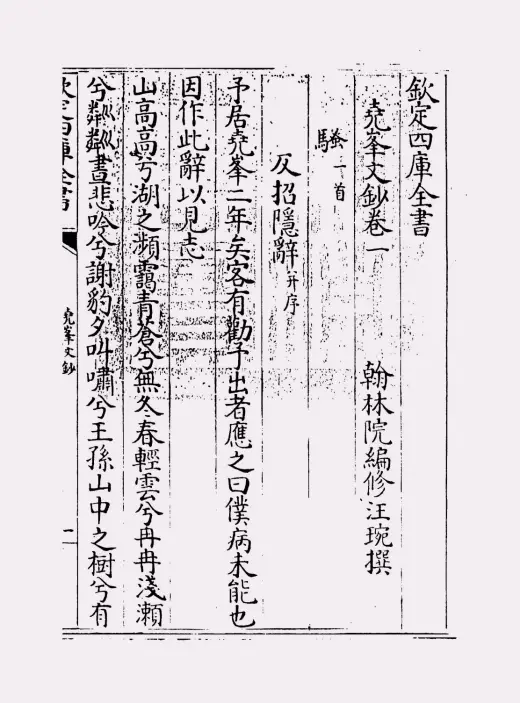 欽定四庫全書
堯峯文鈔卷一
翰林院編修汪琬撰
騷一首
反招隱辭并序
予居堯峯二年矣客有勸予出者應之曰僕病未能也
因作此辭以見志
山高高兮湖之瀕靄青蒼兮無冬春輕雲兮冉冉淺瀨
兮粼粼晝悲吟兮謝豹夕叫嘯兮王孫山中之樹兮有
欽定四庫全書
堯峯文鈔